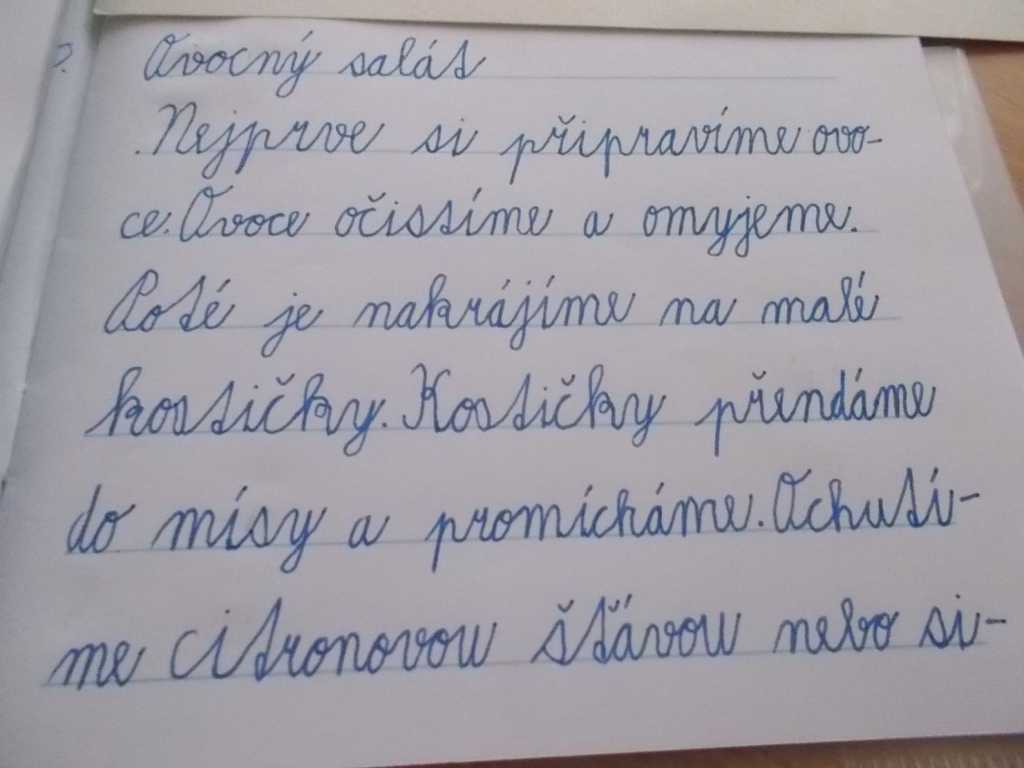 ?. Ovocný salát
Nejprve si připravíme ovo-
ce. Ovoce očistíme a omyjeme.
Poté je nakrájíme na malé
kostičky. Kostičky přendáme
do mísy a promícháme. Ochutí-
me citronovou šťávou nebo si-